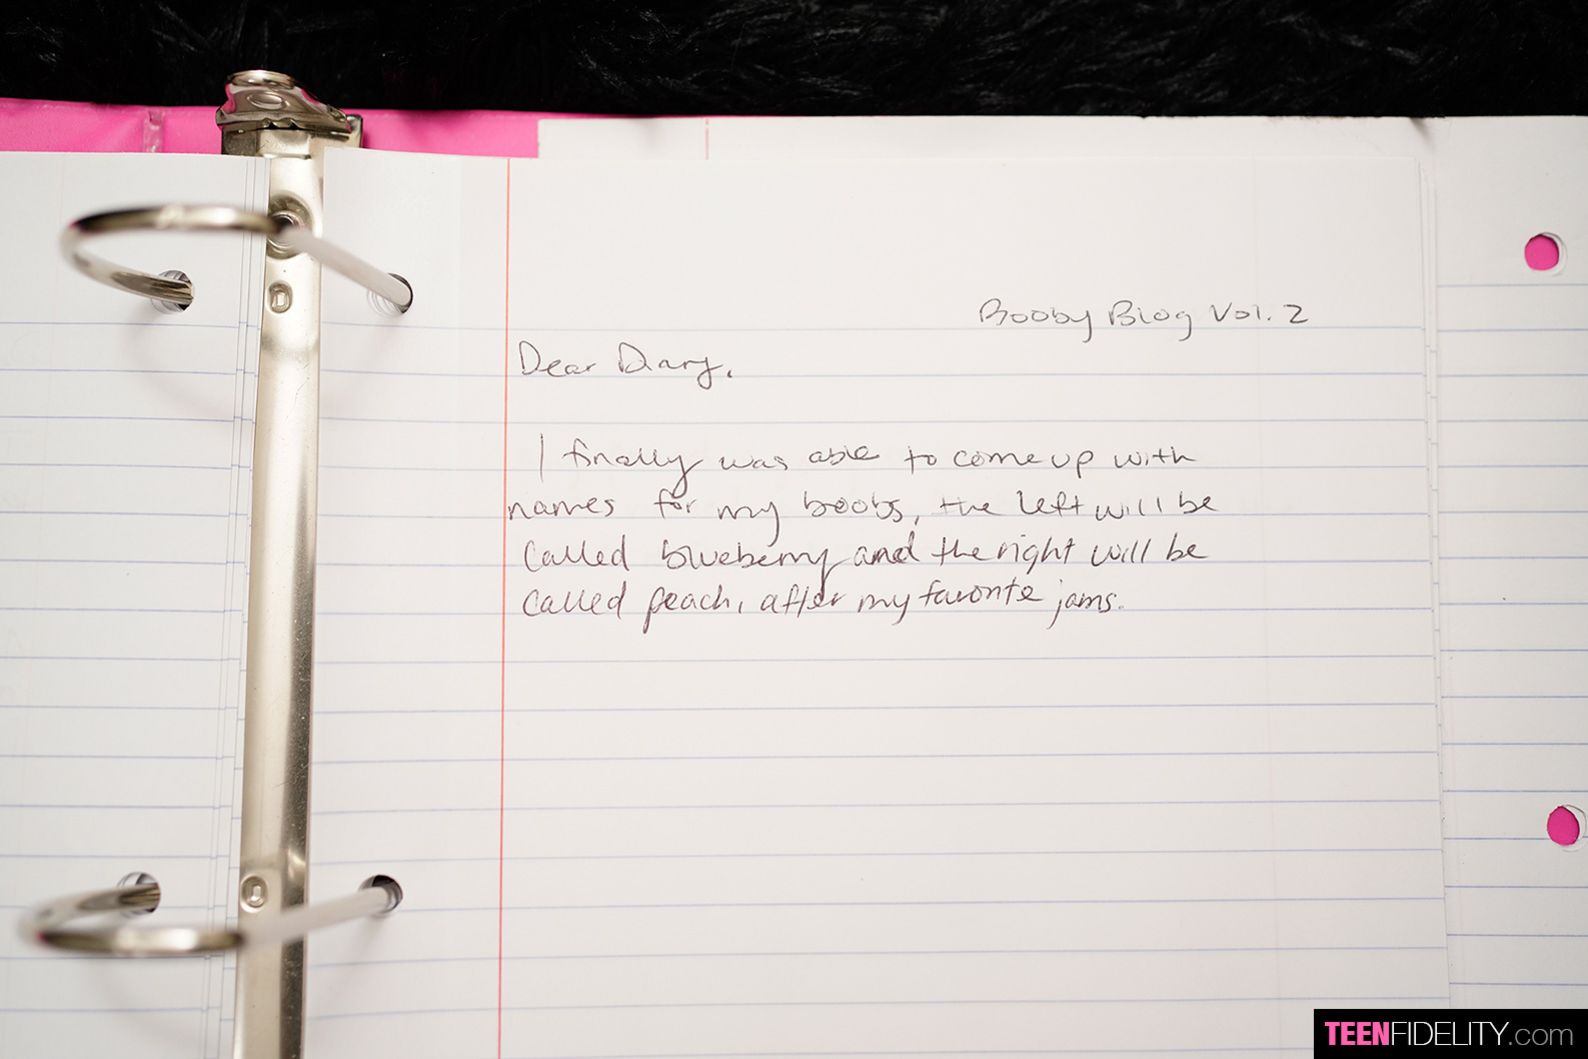 Booby Blog Vol. 2
Dear Diary,
I finally was able to come up with
names for my boobs, the left will be
called blueberry and the right will be
called peach, after my favorite jams.
TEENFIDELITY.com